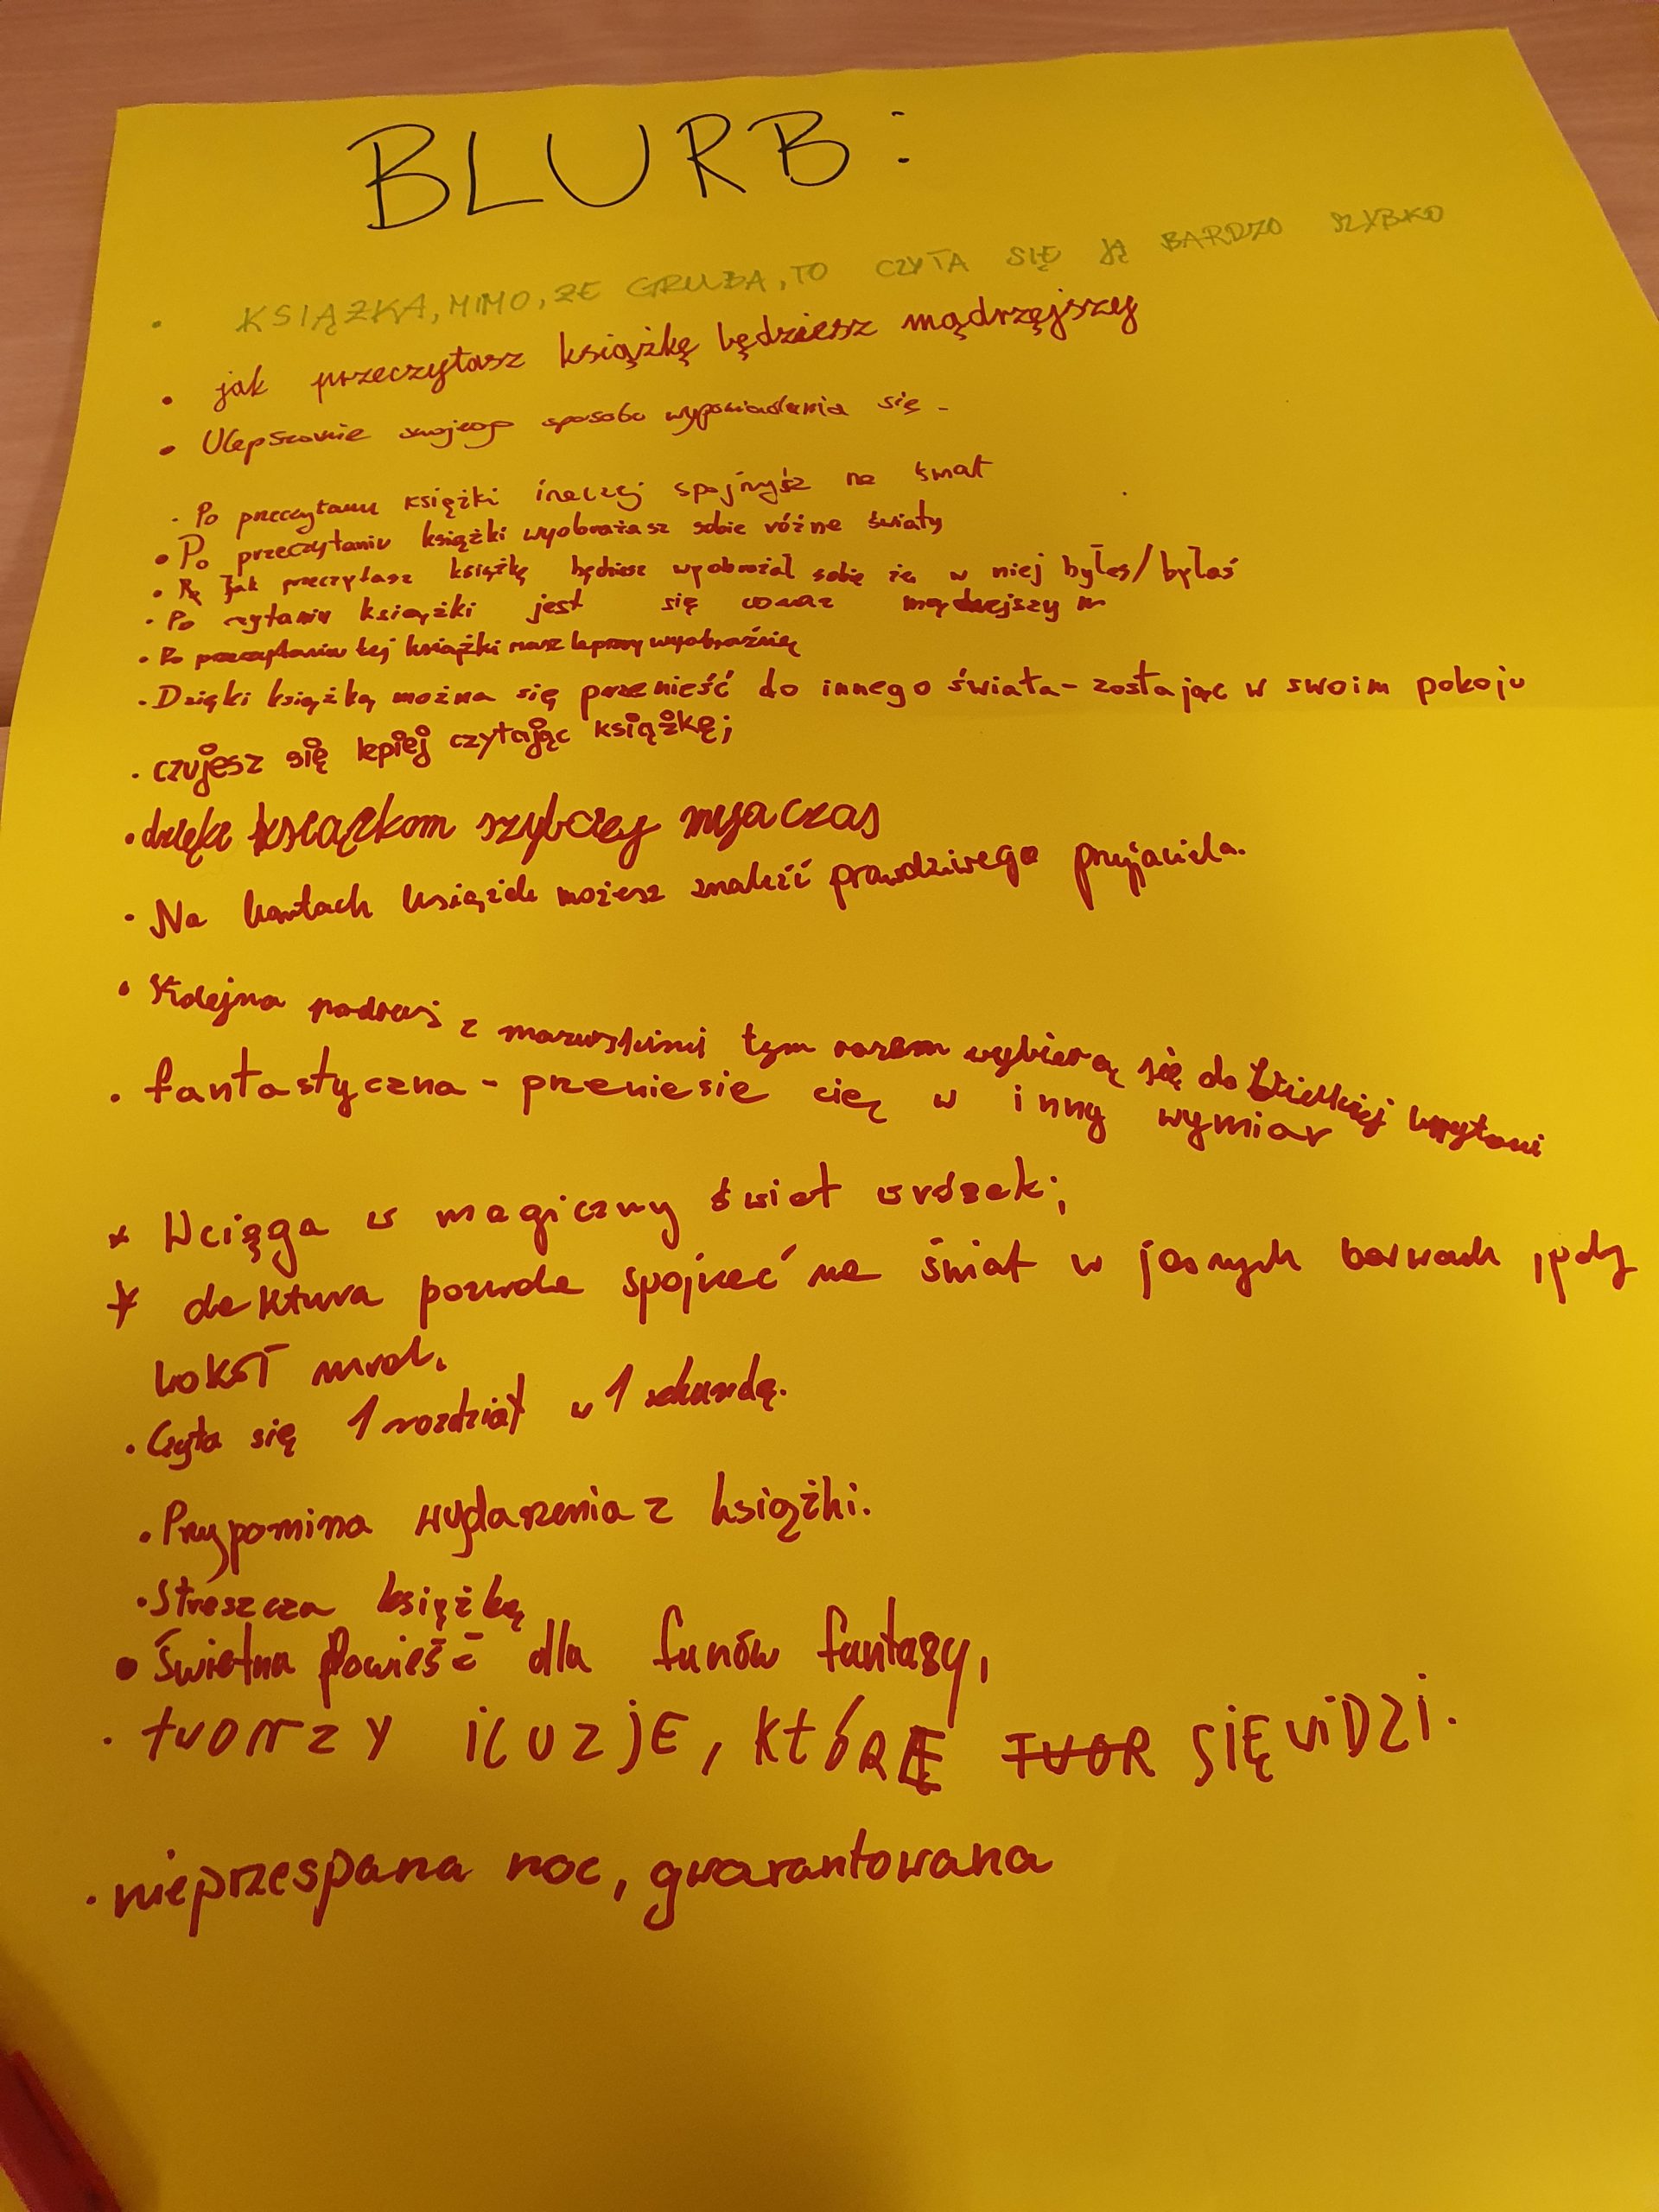 BLURB:
• KSIĄŻKA, MIMO, ŻE GRUBA, TO CZYTA SIĘ JĄ BARDZO SZYBKO
• jak przeczytasz książkę będziesz mądrzejszy
• Ulepszanie swojego sposobu wypowiadania się.
• Po przeczytaniu książki inaczej spojrzysz na świat
• Po przeczytaniu książki wyobrażasz sobie różne światy
• Jak przeczytasz książkę będziesz wyobrażał sobie że w niej byłeś/byłaś
• Po czytaniu książki jest się coraz mądrzejszym
• Po przeczytaniu tej książki masz lepszą wyobraźnię
• Dzięki książką można się przenieść do innego świata - zostając w swoim pokoju
• czujesz się lepiej czytając książkę;
• dzięki książkom szybciej mija czas
• Na kartach książek możesz znaleźć prawdziwego przyjaciela.
• Kolejna podróż z tym razem wybierą się do Wielkiej
• fantastyczna - przeniesie cię w inny wymiar
* Wciąga w magiczny świat wróżek;
* lektura pozwala spojrzeć na świat w jasnych barwach, gdy
wokół mrok.
• Czyta się 1 rozdział w 1 sekundę.
• Przypomina wydarzenia z książki.
• Streszcza książkę
• Świetna powieść dla fanów fantasy,
• tworzy iluzje, KtÓRE TWOR SIĘ WiDZi.
• nieprzespana noc, gwarantowana